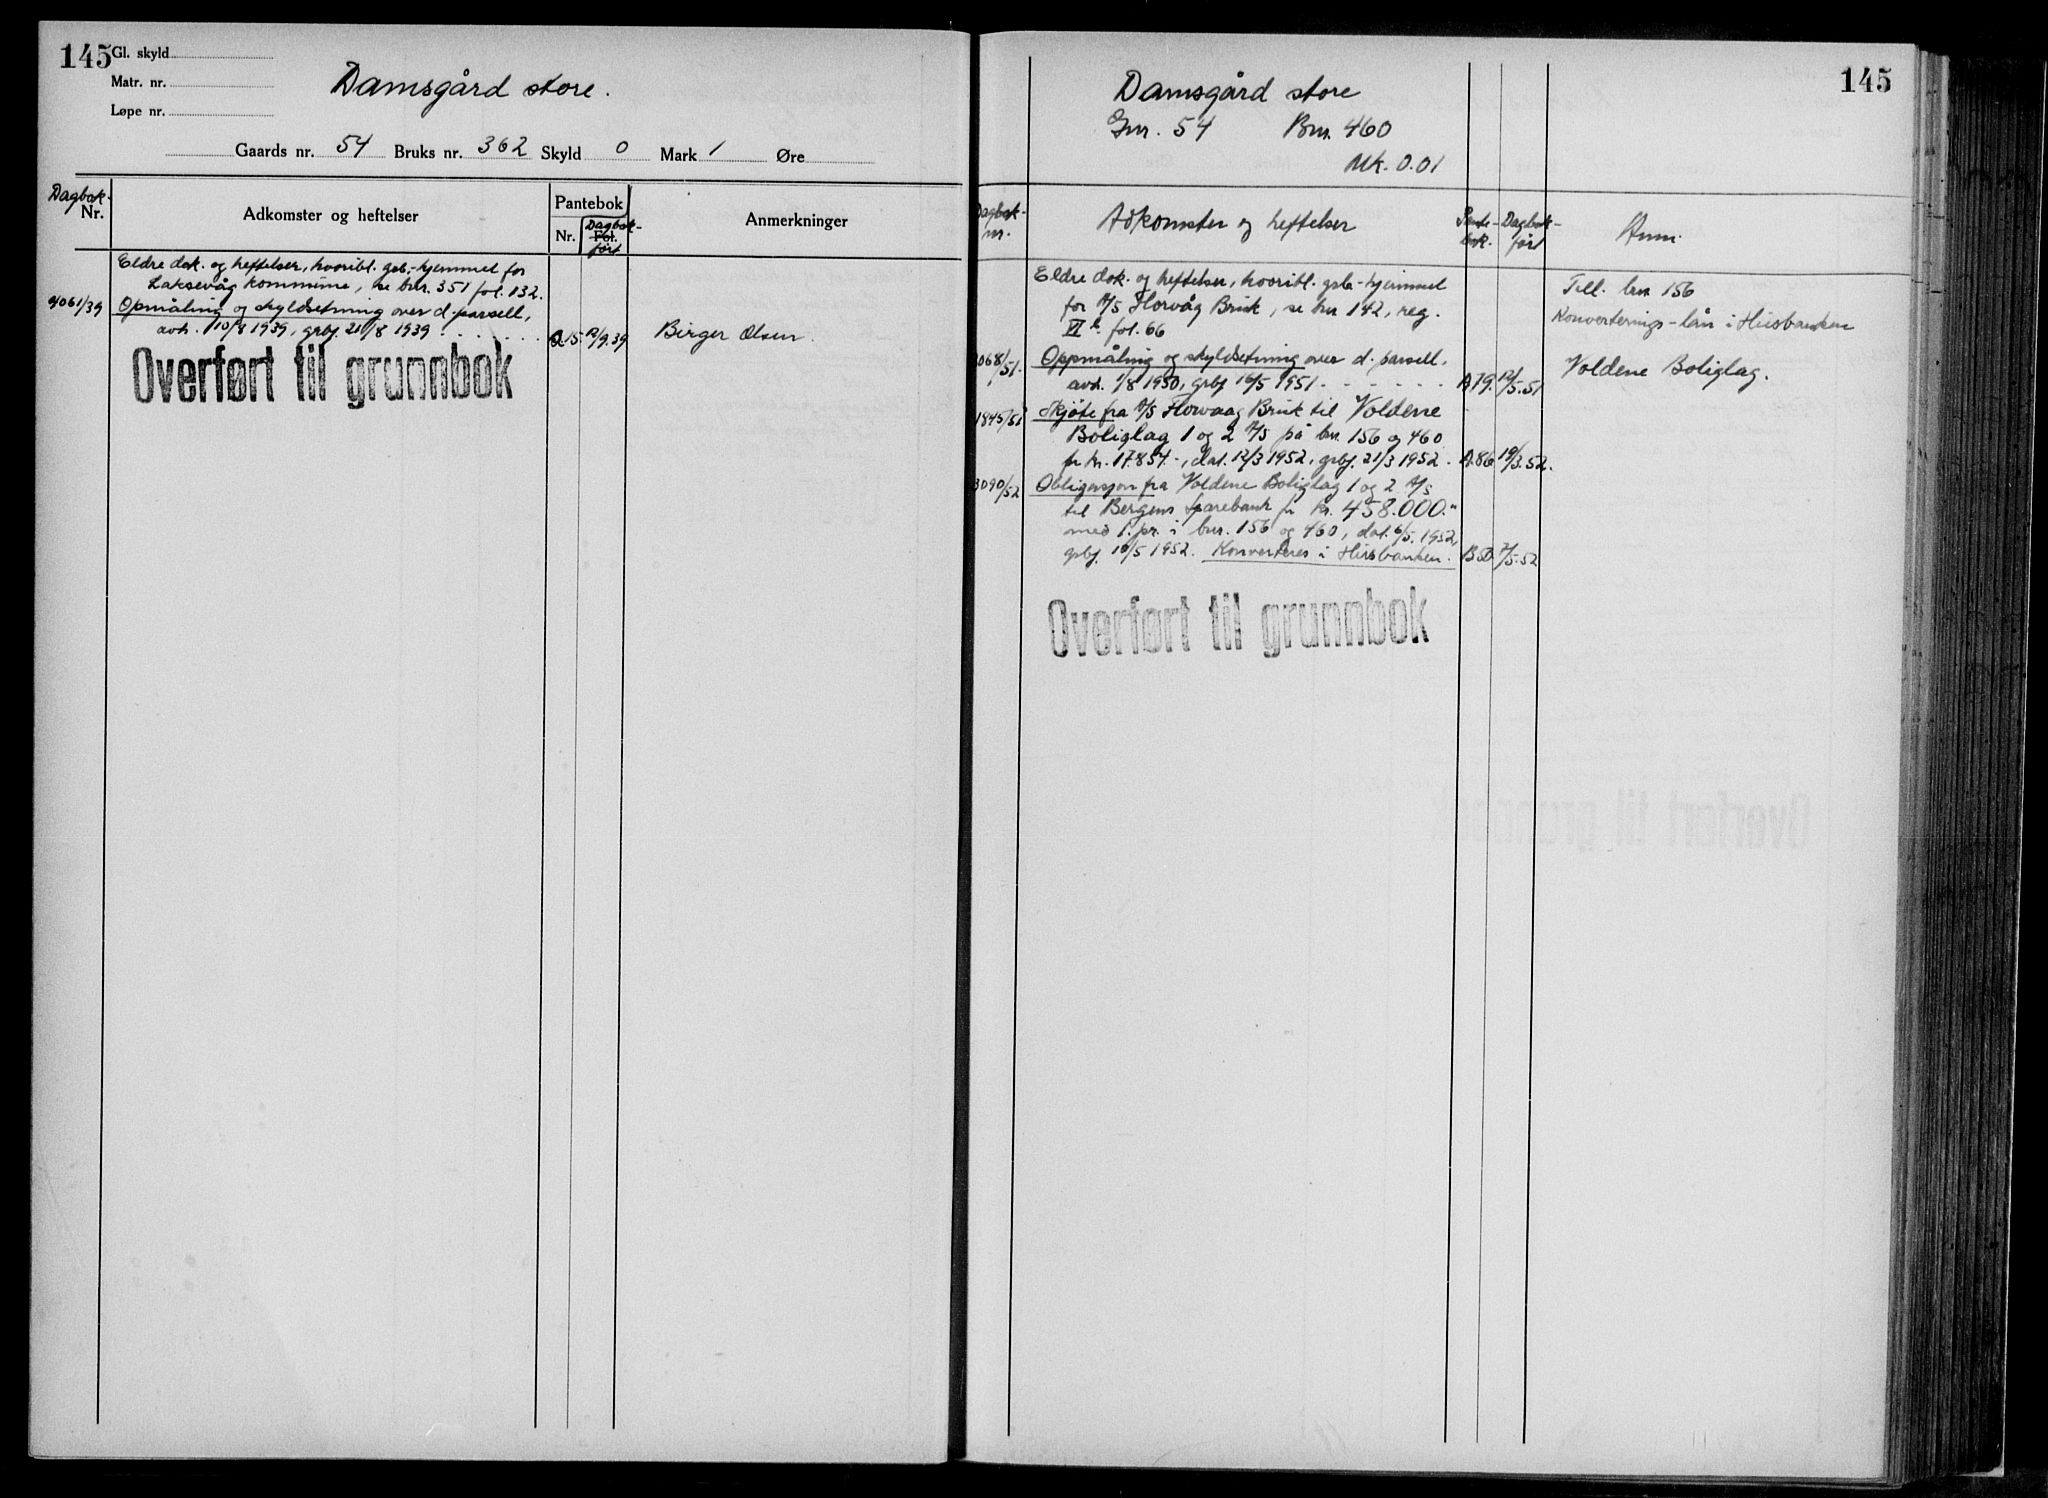 145
Gl. skyld
Matr. nr.
Løpe nr.
Damsgård store.
Gaards nr. 54 Bruks nr. 362 Skyld 0 Mark 1 Øre
Dagbok-
Nr.
Adkomster og heftelser
Pantebok
Nr.
Dagbok-
Fol.
ført
Anmerkninger
Eldre dok. og heftelser, hvoribl. gsb.-hjemmel for
Laksevåg kommune, se bnr. 351 fol. 132.
4061/39 Opmåling og skyldsetning over d. parsell,
avh. 10/8 1939, grbf. 21/8 1939 . . . . . . . A.15. /9.39 Birger Olsen.
Overført til grunnbok
145
Damsgård store
Gnr. 54 Bnr. 460
Mk. 0.01
Dagbok-
nr.
Adkomster og heftelser
Pante-
bok.
Dagbok-
ført
Anm.
Eldre dok. og heftelser, hvoribl. gsb-hjemmel
for A/S Florvåg Bruk, se bnr 142, reg.
VI fol. 66
Till. bnr 156
Konverterings-lån i Husbanken
3068/51. Oppmåling og skyldsetning over d. parsell,
avh. 1/8 1950, grbf 16/5 1951 . . . . . . A 79. /5.51 Voldene Boliglag.
1845/52 Skjøte fra A/S Florvaag Bruk til Voldene
Boliglag 1 og 2 A/S på bnr. 156 og 460
for kr. 17.854-, dat. 12/3 1952, grbf. 21/3 1952 . A.86 19/3.52.
3090/52 Obligasjon fra Voldene Boliglag 1 og 2 A/S
til Bergens Sparebank for kr. 458.000.-
med 1. pr. i bnr. 156 og 460, dat. 6/5. 1952,
grbf. 10/5 1952. Konverteres i Husbanken. B 50 7/5.52
Overført til grunnbok